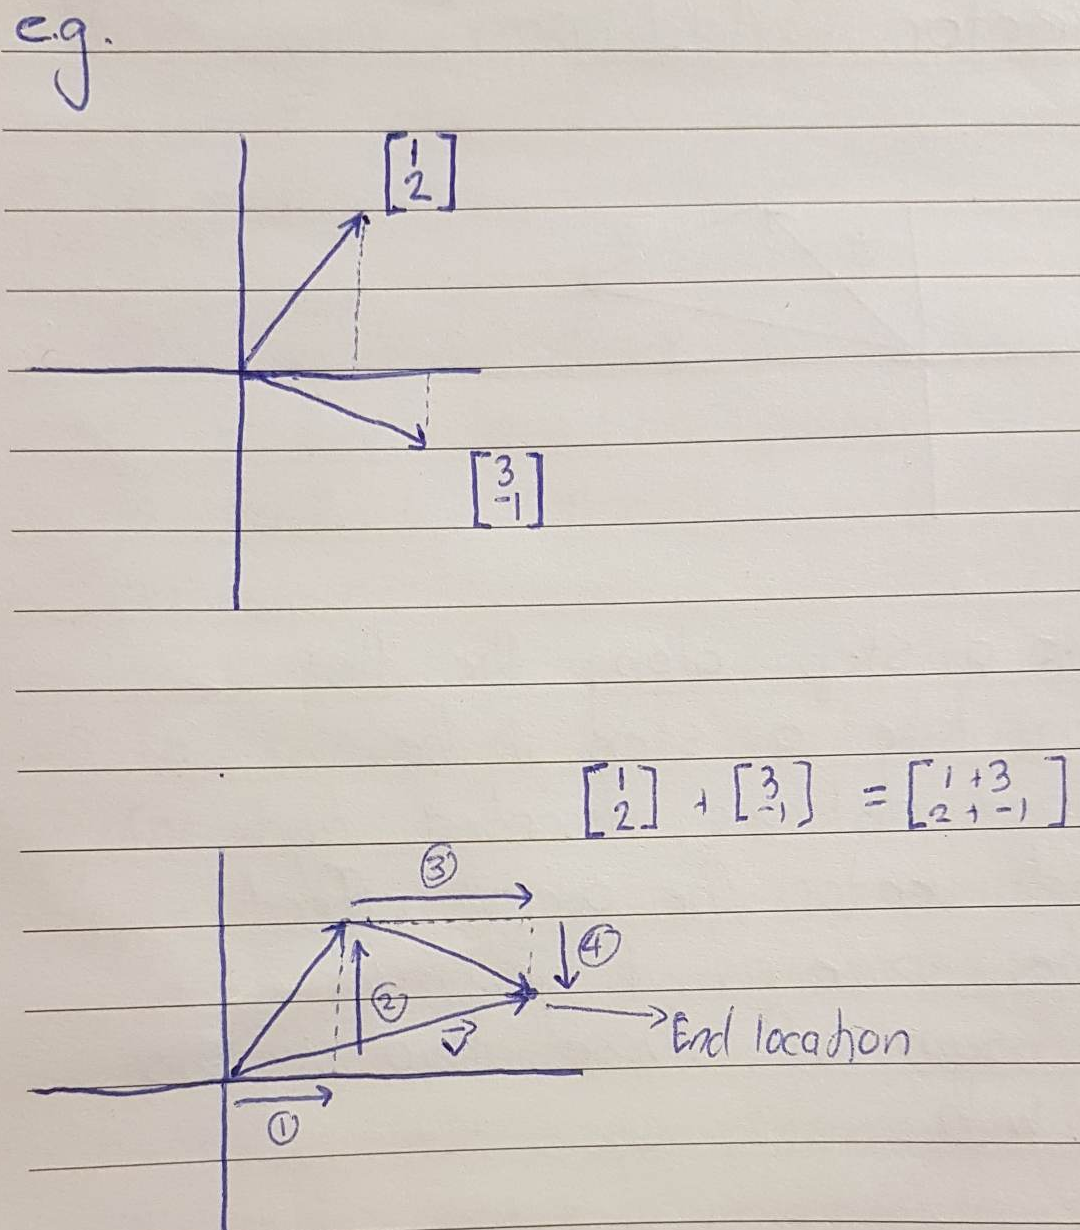 e.g.
[1
2]
[3
-1]
[1
2] + [3
-1] = [1 + 3
2 + -1]
③
④
②
v⃗
End location
①